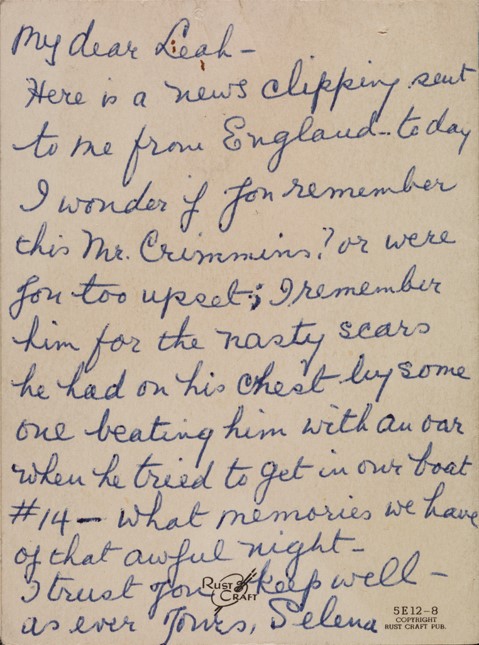 My dear Leah -
Here is a news clipping sent
to me from England - today
I wonder if you remember
this Mr. Crimmins? or were
you too upset; I remember
him for the nasty scars
he had on his chest by some
one beating him with an oar
when he tried to get in our boat
#14 - what memories we have
of that awful night -
I trust you keep well -
as ever Yours, Selena
RUST CRAFT
5E12-8
COPYRIGHT
RUST CRAFT PUB.